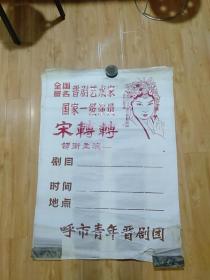 全国著名晋剧艺术家
国家一级演员
宋轉轉
领衔主演
剧目
时间
地点
呼市青年晋剧团